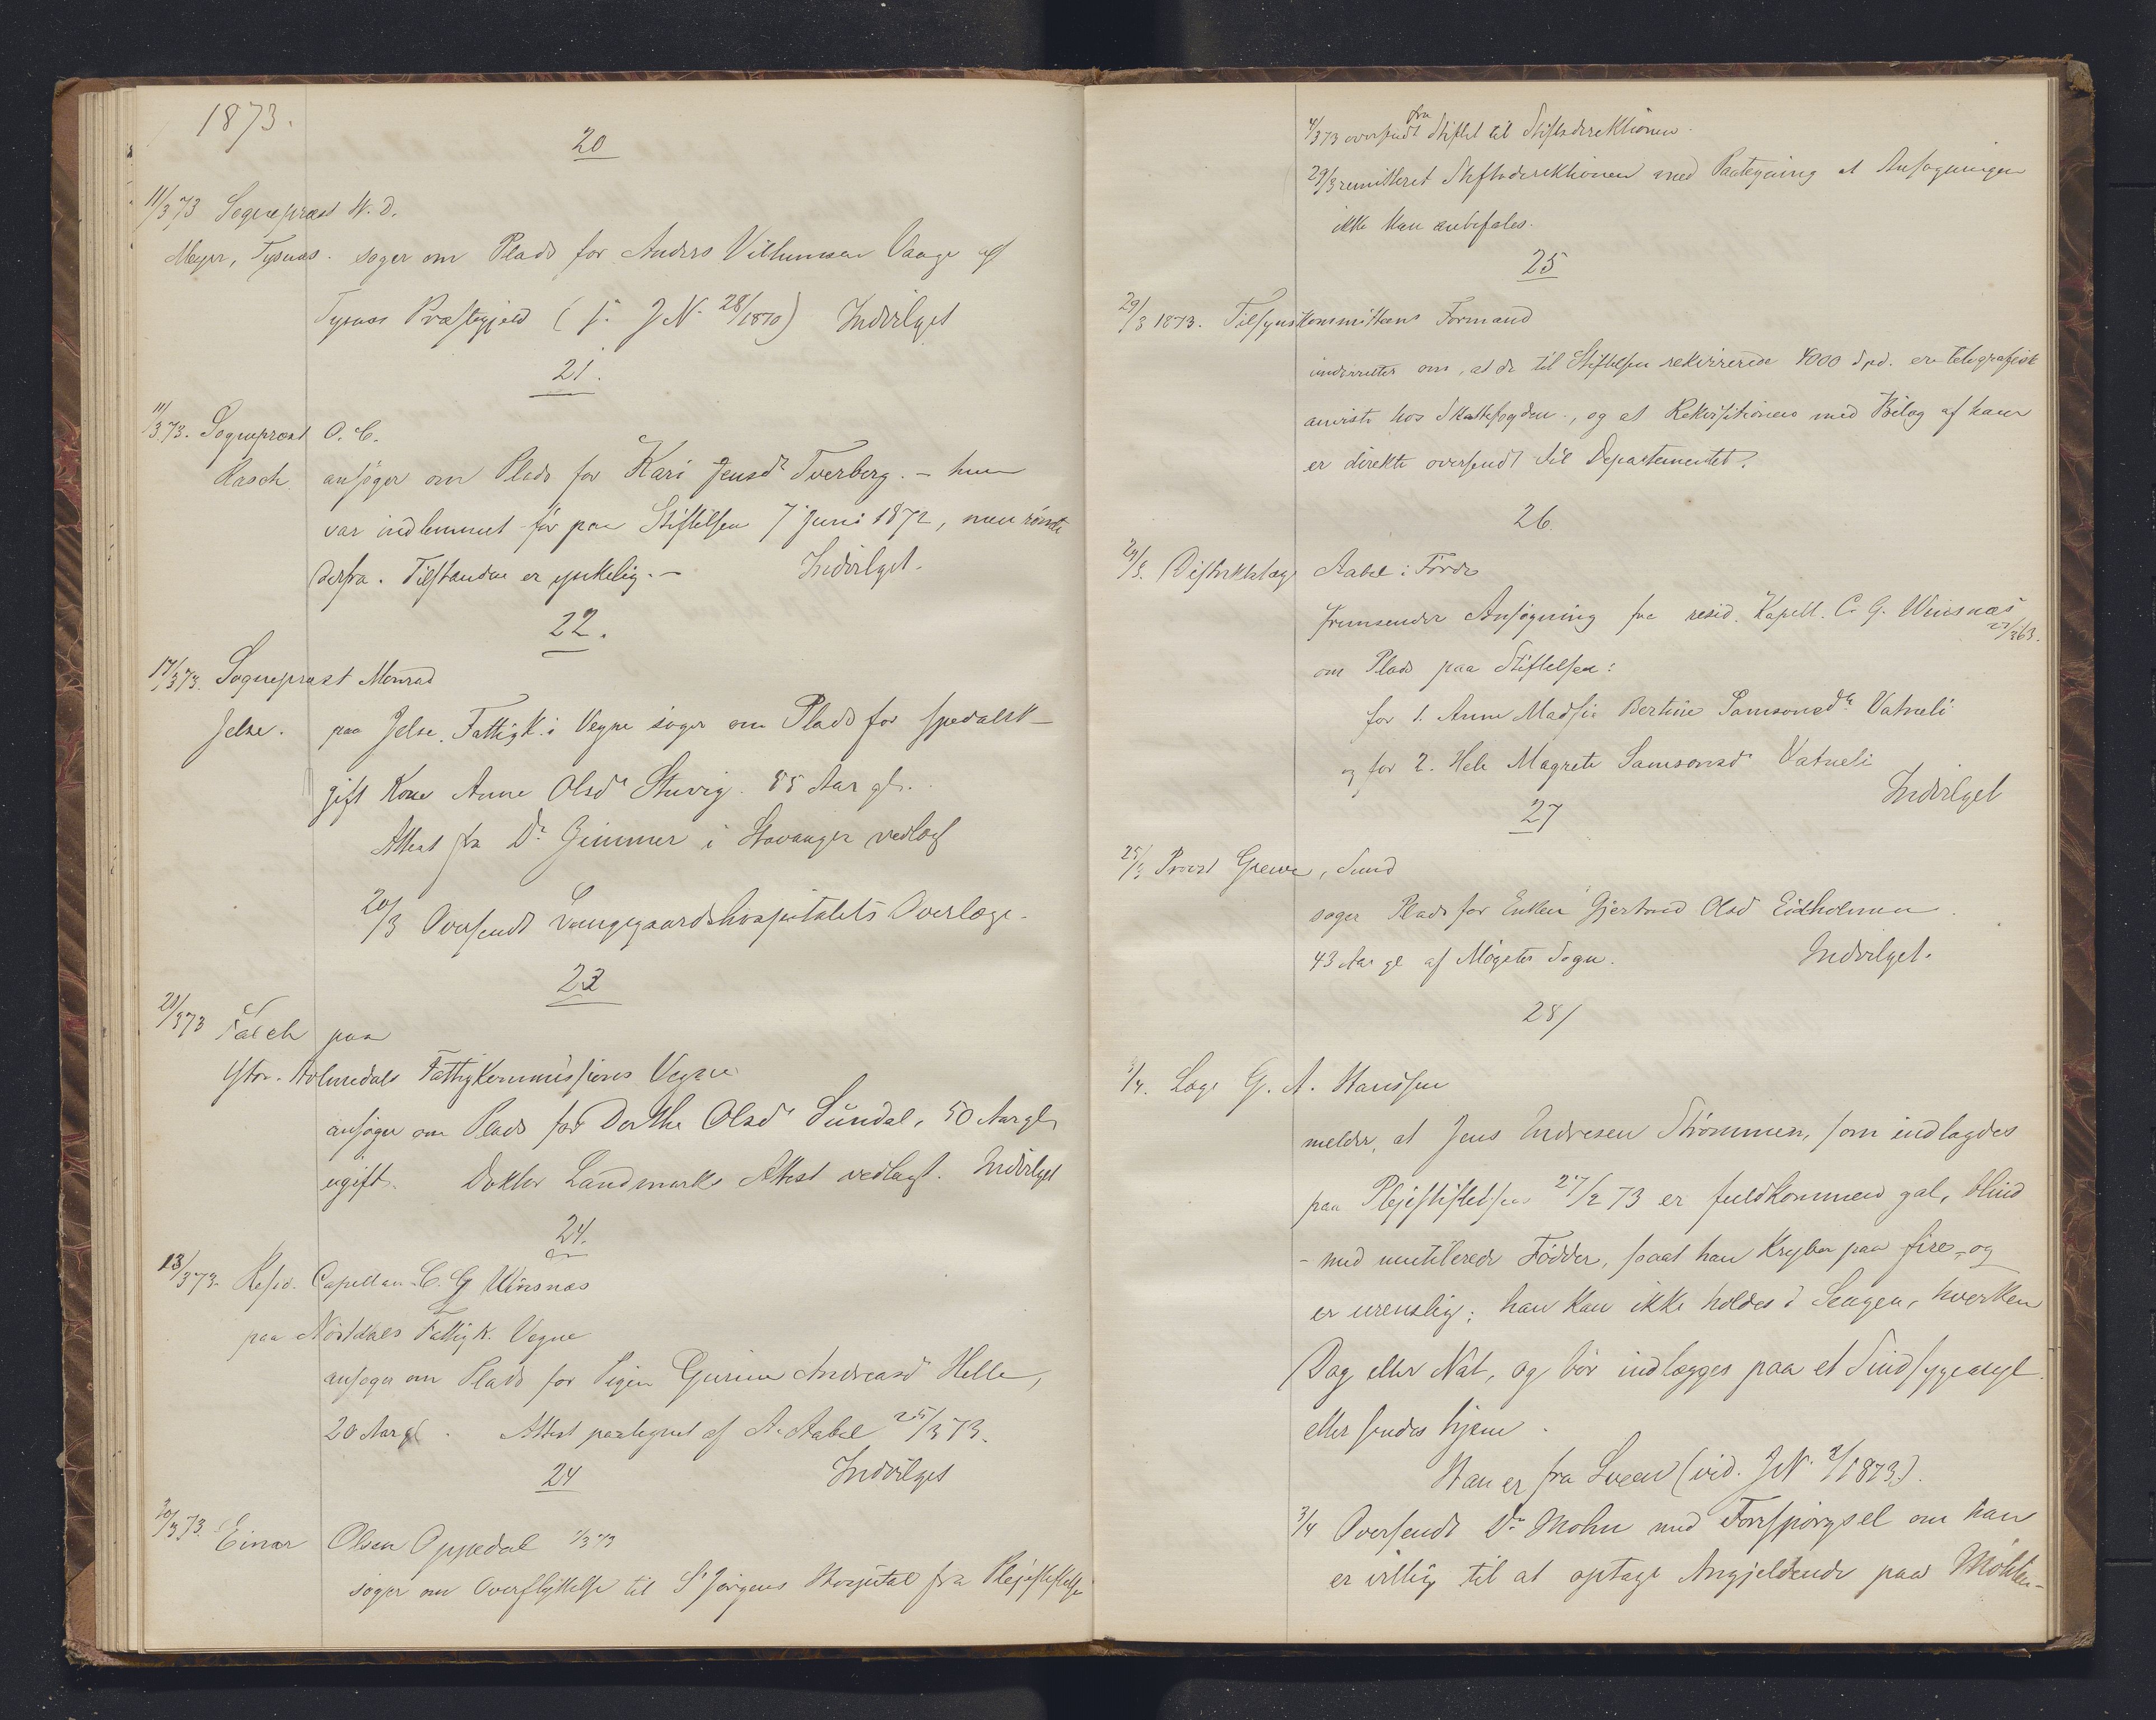 1873.
20
11/3 73 Sogneprest W. D.
Meyer, Tysnæs. søger om Plads for Anders Villumsen Vaage af
Tysnæs Præstegjeld (f. J.N. 28/1870) Indvilget
21.
11/3 73. Sogneprest O. C.
Rasch ansøger om Plads for Kari Jensdr Tverberg. – hun
var indlemmet før paa Stiftelsen 7 Juni 1872, men rømte
derfra. Tilstanden er ynkelig. – Indvilget.
22.
17/3 73. Sogneprest Monrad
Jelse. paa Jelse Fattigk.s Vegne søger om Plads for spedalsk
gift Kone Anne Olsdr Stuvig. 55 Aar gl.
Attest fra Dr. i Stavanger vedlagt
20/3 Oversendt Lungegaardshospitalets Overlæge.
23
21/3 73 Falch paa
Ytre Holmedals Fattigkommissions Vegne
ansøger om Plads for Dorthe Olsdr Sundal, 50 Aar gl,
ugift. Doktor Landmarks Attest vedlagt. Indvilget
24.
13/3 73. Resid. Capellan C. G. Winsnæs
paa Nöstdals Fattigk. Vegne
ansøger om Plads for Pigen Gurine Andreasdr Helle,
20 Aar gl. Attest paategnet af A. Aabel 25/3 73.
24 Indvilget
20/3 73. Einar Olsen Oppedal 1/3 73
søger om Overflyttelse til St Jørgens Hospital fra Plejestiftelsen
4/3 73 oversendt fra Stiftet til Stiftsdirektionen.
29/3 remitteret Stiftsdirektionen med Paategning at Ansøgningen
ikke kan anbefales.
25
29/3 1873. Tilsynskommitteens Formand
underretter om, at de til Stiftelsen rekvirerede 4000 Spd. ere telegrafisk
anviste hos Skattefogden, og at Rekvisitionen med Bilag af ham
er direkte oversendt til Departementet.
26.
29/3. Distriktslæge Aabel i Förde
fremsender Ansøgning fra resid. Kapell. C. G. Winsnæs
om Plads paa Stiftelsen:
for 1. Anne Madsia Bertine Samsonsdr Vatneli
og for 2. Hele Magrete Samsonsdr Vatneli
27 Indvilget
25/3 Provst Greve, Sund
søger Plads for Enken Gjertrud Olsd Eidholmen
43 Aar gl af Møgster Sogn. Indvilget.
28/
3/4. Læge G. A. Hanssen
melder, at Jens Endresen Strømmen, som indlagdes
paa Plejestiftelsen 27/2 73 er fuldkommen gal, blind
– med mutilerede Fødder, saaat han kryber paa fire, og
er urenslig; han kan ikke holdes i Sengen, hverken
Dag eller Nat, og bör indlægges paa et Sindsygeasyl
eller sendes hjem.
Han er fra Sveen (vid. J.N. 2/1873).
3/4 Oversendt Dr. Mohn med Forespörgsel om han
er villig til at optage Angjeldende paa Möhlen-